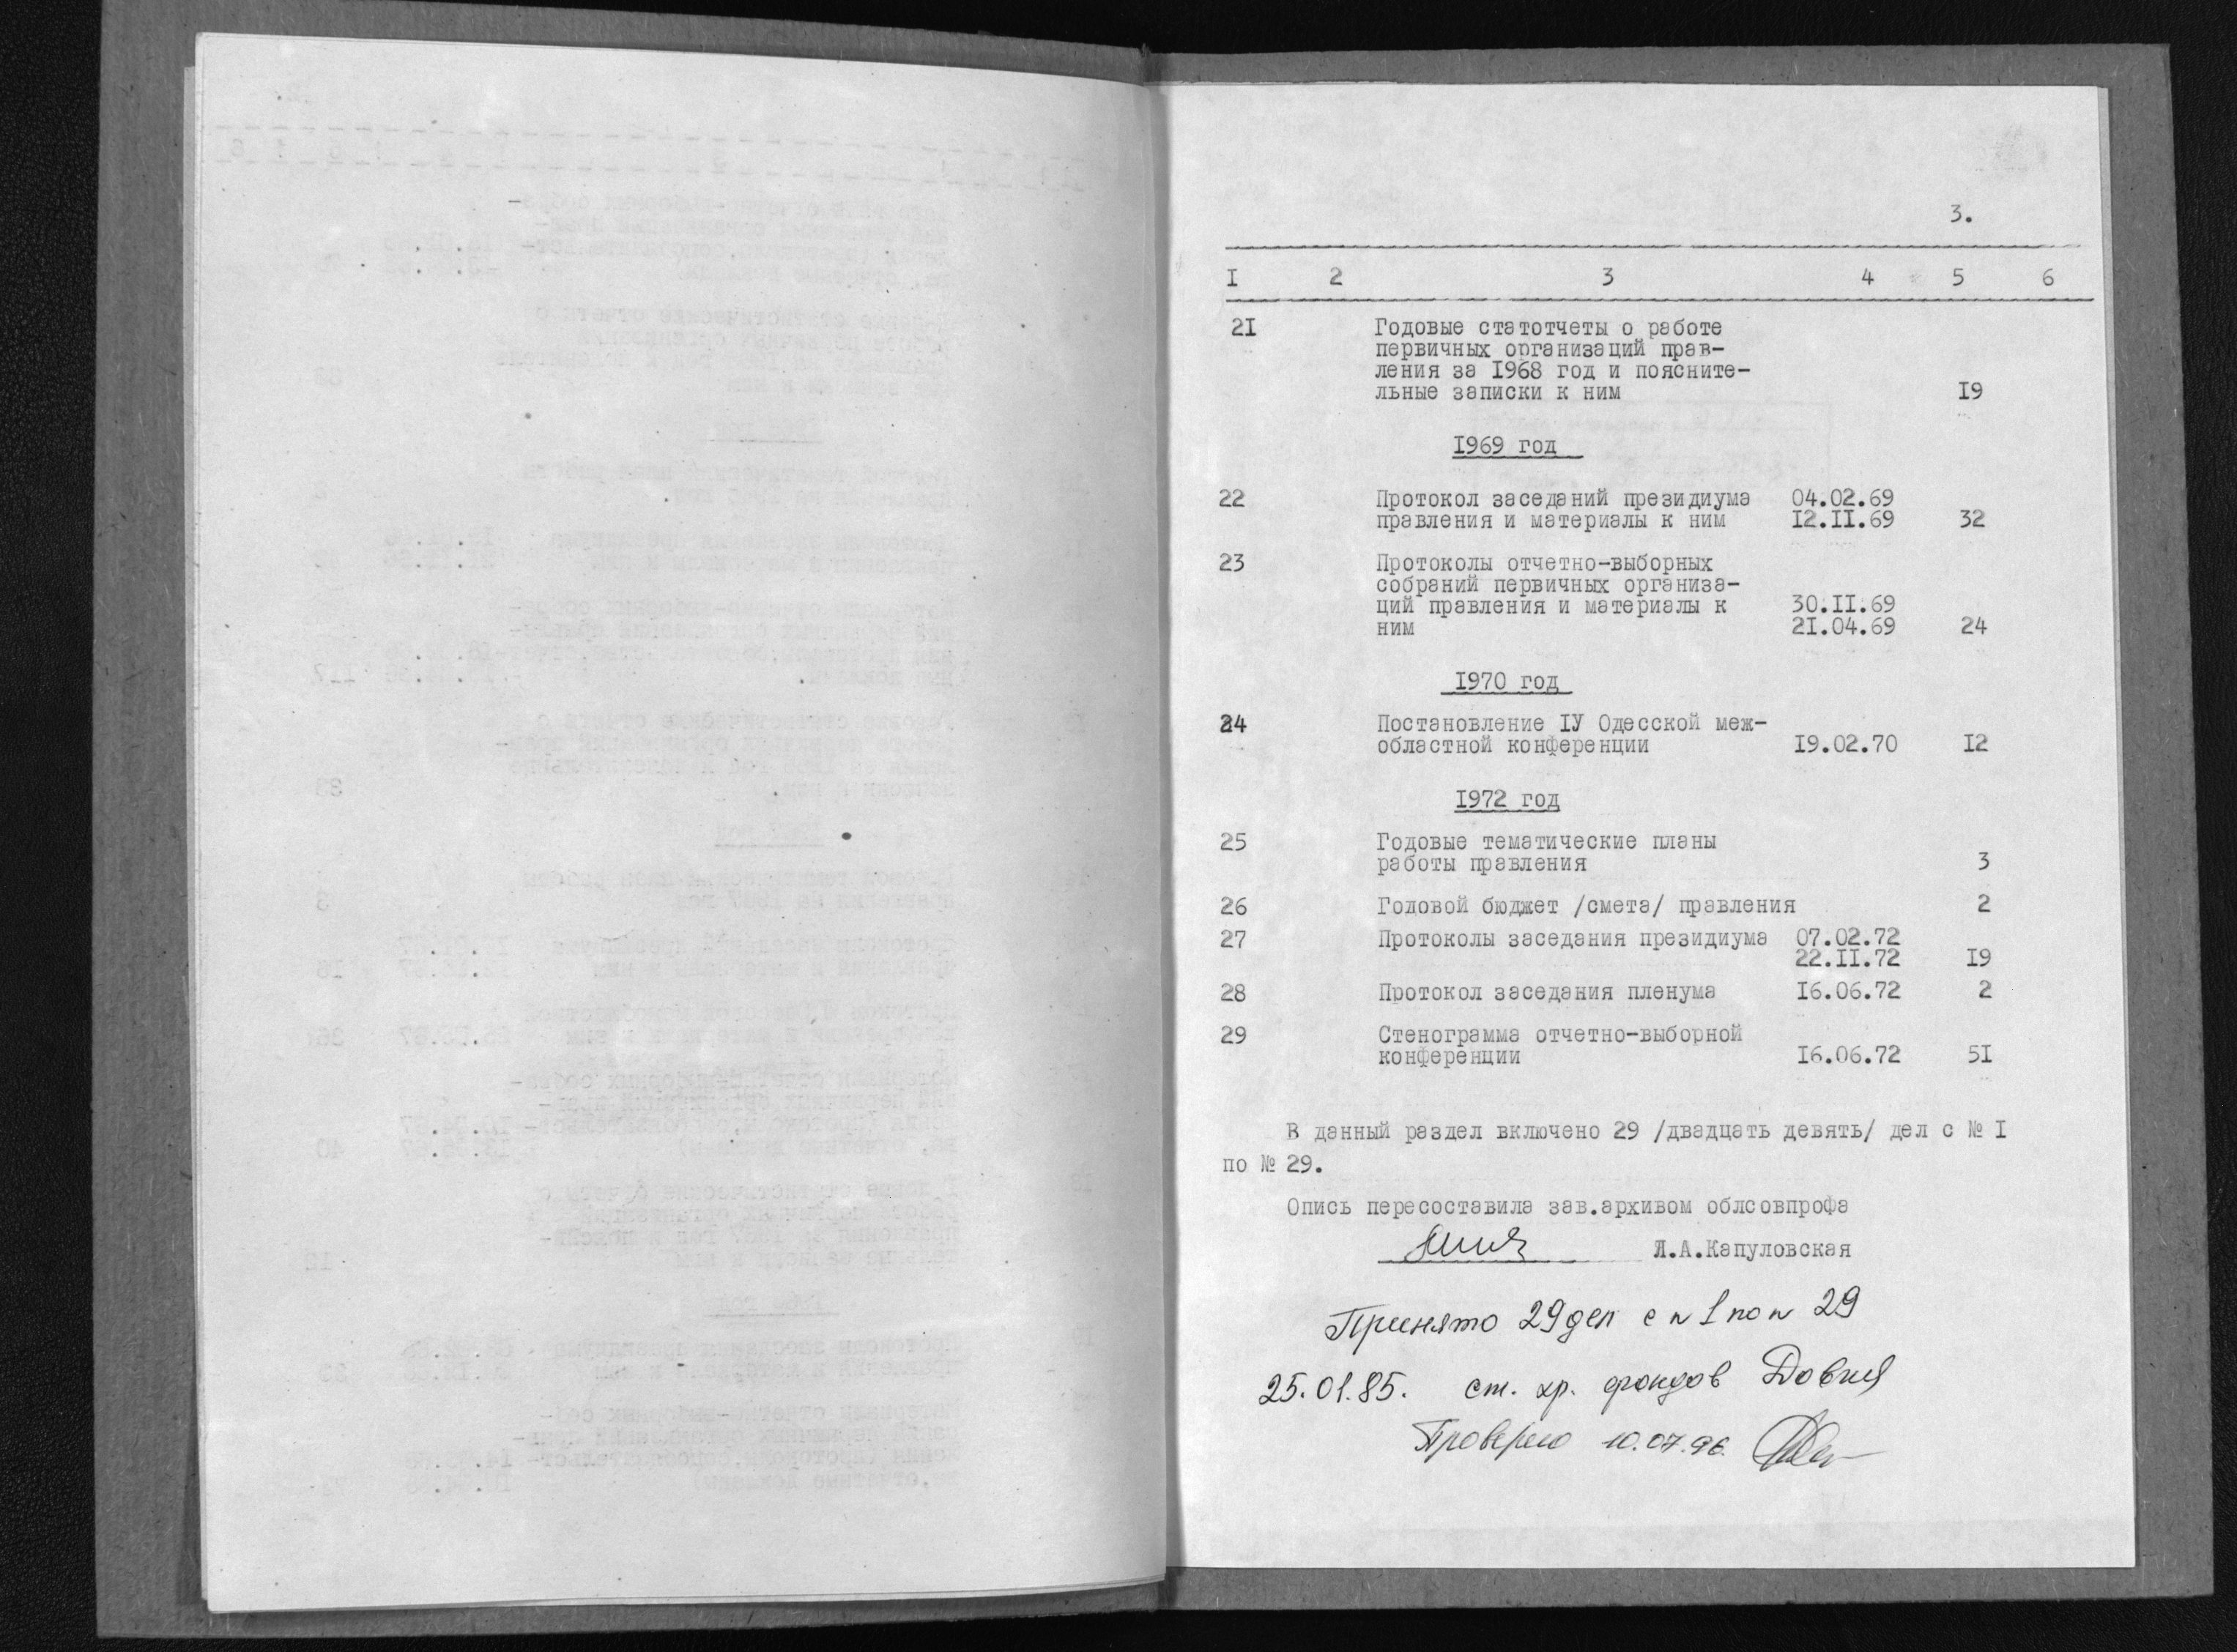 3.
I 2 3 4 5 6
21 Годовые статотчеты о работе
первичных организаций прав-
ления за 1968 год и поясните-
льные записки к ним 19
1969 год
22 Протокол заседаний президиума 04.02.69
правления и материалы к ним 12.11.69 32
23 Протоколы отчетно-выборных
собраний первичных организа-
ций правления и материалы к 30.11.69
ним 21.04.69 24
1970 год
24 Постановление IУ Одесской меж-
областной конференции 19.02.70 12
1972 год
25 Годовые тематические планы
работы правления 3
26 Годовой бюджет /смета/ правления 2
27 Протоколы заседания президиума 07.02.72
22.11.72 19
28 Протокол заседания пленума 16.06.72 2
29 Стенограмма отчетно-выборной
конференции 16.06.72 51
В данный раздел включено 29 /двадцать девять/ дел с № I
по № 29.
Опись пересоставила зав.архивом облсовпрофа
Л.А.Капуловская
Принято 29 дел с n 1 по n 29
25.01.85. ст. хр. фондов
Проверено 10.07.96